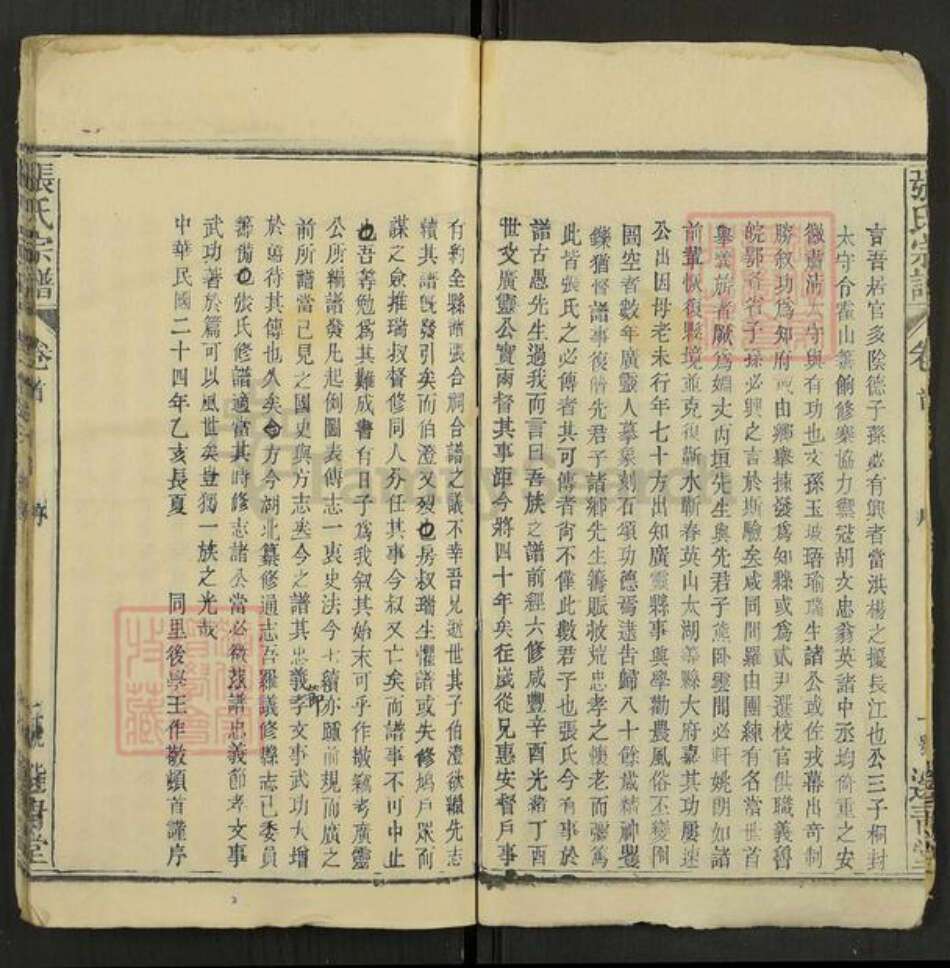 張氏宗譜
言吾居官多陰德子孫必有興者當洪楊之擾長江也公三子桐封
太守令霍山籌餉修寨協力禦寇胡文忠翁英諸中丞均倚重之安
徽肅清太守與有功也文孫玉坡珸瑜璞生諸公或佐戎幕出奇制
勝敘功爲知府或由鄉舉揀發爲知縣或爲貳尹選校官供職義魯
皖鄂各省子孫必興之言於斯驗矣咸同間羅由團練有名當世首
舉義旂者厥爲媚丈內垣先生與先君子熊臥雲聞必軒姚朗如諸
前輩恢復縣境並克復蘄水蘄春英山太湖等縣大府嘉其功屢速
公出因母老未行年七十方出知廣靈縣事興學勸農風俗丕變囹
圄空者數年廣靈人摹象刻石頌功德焉逮告歸八十餘歲精神矍
鑠猶督譜事復偕先君子諸鄉先生籌賑救荒忠孝之忱老而彌篤
此皆張氏之必傳者其可傳者尚不僅此數君子也張氏今有事於
譜古愚先生過我而言曰吾族之譜前經六修咸豐辛酉光緒丁酉
世父廣靈公寶雨督其事距今將四十年矣往歲從兄惠安督戶事
有約全縣諸張合祠合譜之議不幸吾兄逝世其子伯澄欲繼先志
續其譜旣發引矣而伯澄又歿也房叔瑞生懼譜或失修鳩戶眾而
謀之僉推瑞叔督修同人分任其事今叔又亡矣而譜事不可中止
也吾等勉爲其難成書有日子爲我叙其始末可乎作敬竊考廣靈
公所編譜發凡起例圖表傳志一衷史法今七續亦踵前規而廣之
前所譜當已見之國史與方志矣今之譜其忠義節孝文事武功大增
於舊待其傳也久矣今方今湖北纂修通志吾羅議修縣志已委員
籌備也張氏修譜適當其時修志諸公當必徵茲譜忠義節孝文事
武功著於篇可以風世矣豈獨一族之光哉
中華民國二十四年乙亥長夏　同里後學王作敬頓首謹序
張氏宗譜
卷首
序